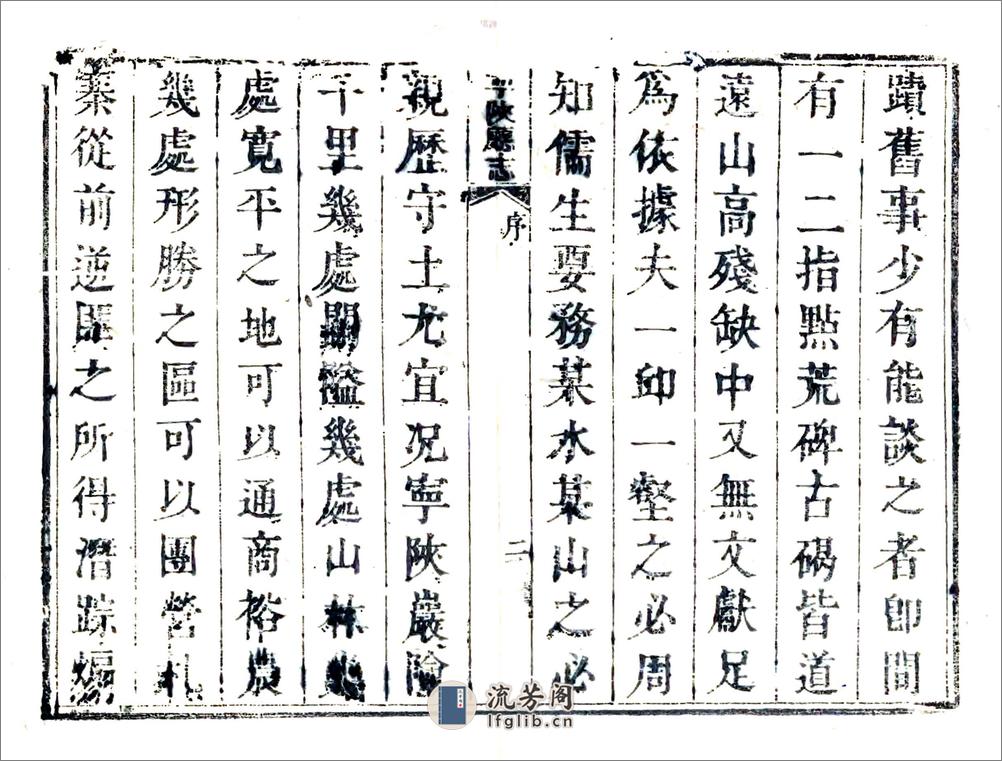 蹟舊事少有能談之者卽間
有一二指點荒碑古碣皆道
遠山高殘缺中又無文獻足
爲依據夫一邱一壑之必周
知儒生要務某水某山之必
陝廳志
序
二
親歷守土尤宜况寧陝巖險
千里幾處關隘幾處山林幾
處寬平之地可以通商裕農
幾處形勝之區可以團營札
寨從前逆匪之所得潛踪煽
流芳阁
lfglib.cn